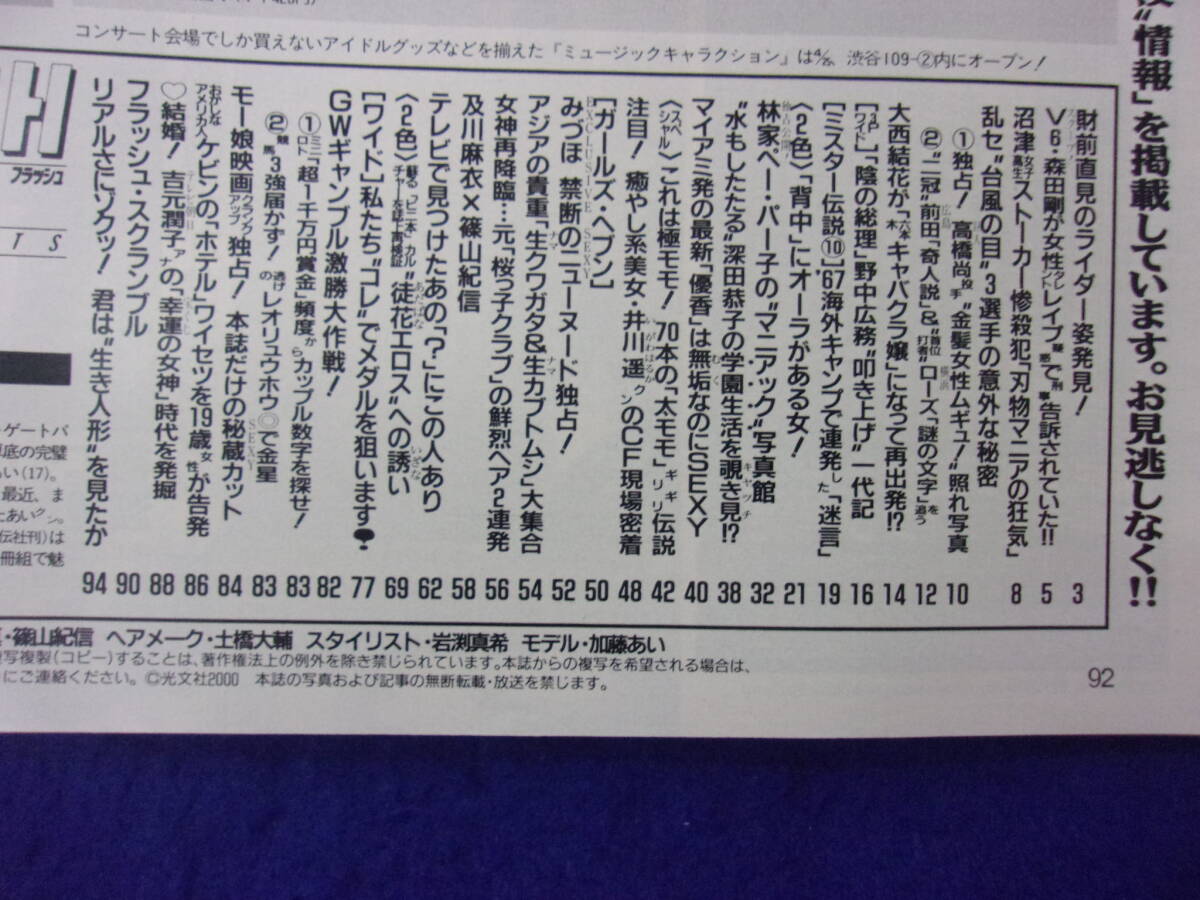 コンサート会場でしか買えないアイドルグッズなどを揃えた「ミュージックキャラクション」は4/28、渋谷109-②内にオープン!
"情報"を掲載しています。お見逃しなく!!
フラッシュ
財前直見のライダー姿発見! 3
V6・森田剛が女性タレントレイプ疑惑で刑事告訴されていた!! 5
沼津女子高生ストーカー惨殺犯「刃物マニアの狂気」 8
乱セ"台風の目"3選手の意外な秘密
①独占! 巨人高橋尚投手"金髪女性ムギュ!"照れ写真 10
②"二冠"広島前田「奇人説」&"首位打者"横浜ローズ「謎の文字」を追う 12
大西結花が「六本木キャバクラ嬢」になって再出発!? 14
[3Pワイド]「陰の総理」野中広務"叩き上げ"一代記 16
[ミスター伝説⑩]'67海外キャンプで連発した「迷言」 19
〈2色〉「背中」にオーラがある女! 21
独占公開! 林家ペー・パー子の"マニアック"写真館 32
"水もしたたる"深田恭子の学園生活を覗き見!? 38
マイアミ発の最新「優香」は無垢なのにSEXY 40
〈スペシャル〉これは極モモ! 70本の「太モモ」ギリギリ伝説 42
注目! 癒やし系美女・井川遥クンのCF現場密着 48
[ガールズ・ヘブン] 50
EXCLUSIVE SEXY
みづほ 禁断のニューヌード独占! 52
アジアの貴重「生クワガタ&生カブトムシ」大集合 54
女神再降臨…元「桜っ子クラブ」の鮮烈ヘア2連発 56
及川麻衣×篠山紀信 58
テレビで見つけたあの「?」にこの人あり 62
〈2色〉蘇る「ビニ本」カルチャーを誌上再検証"徒花エロス"への誘い 69
[ワイド]私たち"コレ"でメダルを狙います! 77
GWギャンブル激勝大作戦! 82
①ミニロト「超1千万円賞金」頻度からカップル数字を探せ! 83
②競馬"3強届かず!"逃げのレオリュウホウ◎で金星 83
モー娘映画クランクアップ独占! 本誌だけの秘蔵カット 84
おかしなアメリカ人ケビンの「ホテル」ワイセツを19歳女性が告発 86
♡結婚! テレビ朝日吉元潤子アナの「幸運の女神」時代を発掘 88
フラッシュ・スクランブル 90
リアルさにゾクッ! 君は"生き人形"を見たか 94
・ゲートバ
底の完璧
らい(17)。
最近、ま
あいクン。
伝社刊)は
冊組で魅
・篠山紀信 ヘアメーク・土橋大輔 スタイリスト・岩渕真希 モデル・加藤あい
写複製(コピー)することは、著作権法上の例外を除き禁じられています。本誌からの複写を希望される場合は、
にご連絡ください。©光文社2000 本誌の写真および記事の無断転載・放送を禁じます。
92